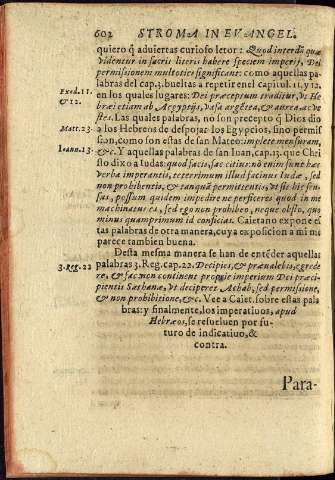 602 STROMA IN EVANGEL.
quiero q̃ aduiertas curioso letor: Quod interdũ quæ
videntur in sacris literis habere speciem imperij, Dei
permissionem multoties significant: como aquellas pa
labras del cap. 3. bueltas a repetir en el capit. 11. y 12.
Exod. 11.
& 12.
en los quales lugares: Dei præceptum traditur, vt He
bræi etiam ab Aegyptijs, vasa argẽtea, & aurea, ac ve
stes. Las quales palabras, no son precepto q̃ Dios dio
Matt. 23.
a los Hebreos de despojar los Egypcios, sino permis
sion, como son estas de san Mateo: implete mensuram,
Ioann. 13.
&c. Y aquellas palabras de san Iuan, cap. 13. que Chri
sto dixo a Iudas: quod facis, fac citius: nõ enim sunt hæc
verba imperantis, teterrimum illud facinus Iudæ, sed
non prohibentis, & tanquã permittentis, vt sit hic sen-
sus, possum quidem impedire ne perficeres quod in me
machinatus es, sed ego non prohibeo, neque obsto, quo
minus quamprimum id conficias. Caietano expone es
tas palabras de otra manera, cuya exposicion a mi me
parece tambien buena.
Desta mesma manera se han de entẽder aquellas
3. Reg. 22
palabras 3. Reg. cap. 22. Decipies, & præualebis, egrede
re, & fac non continent proprie imperium Dei præci-
pientis Sathanæ, vt deciperet Achab, sed permissione,
& non prohibitione, &c. Vee a Caiet. sobre estas pala
bras: y finalmente, los imperatiuos, apud
Hebræos, se resueluen por fu-
turo de indicatiuo, &
contra.
Para-